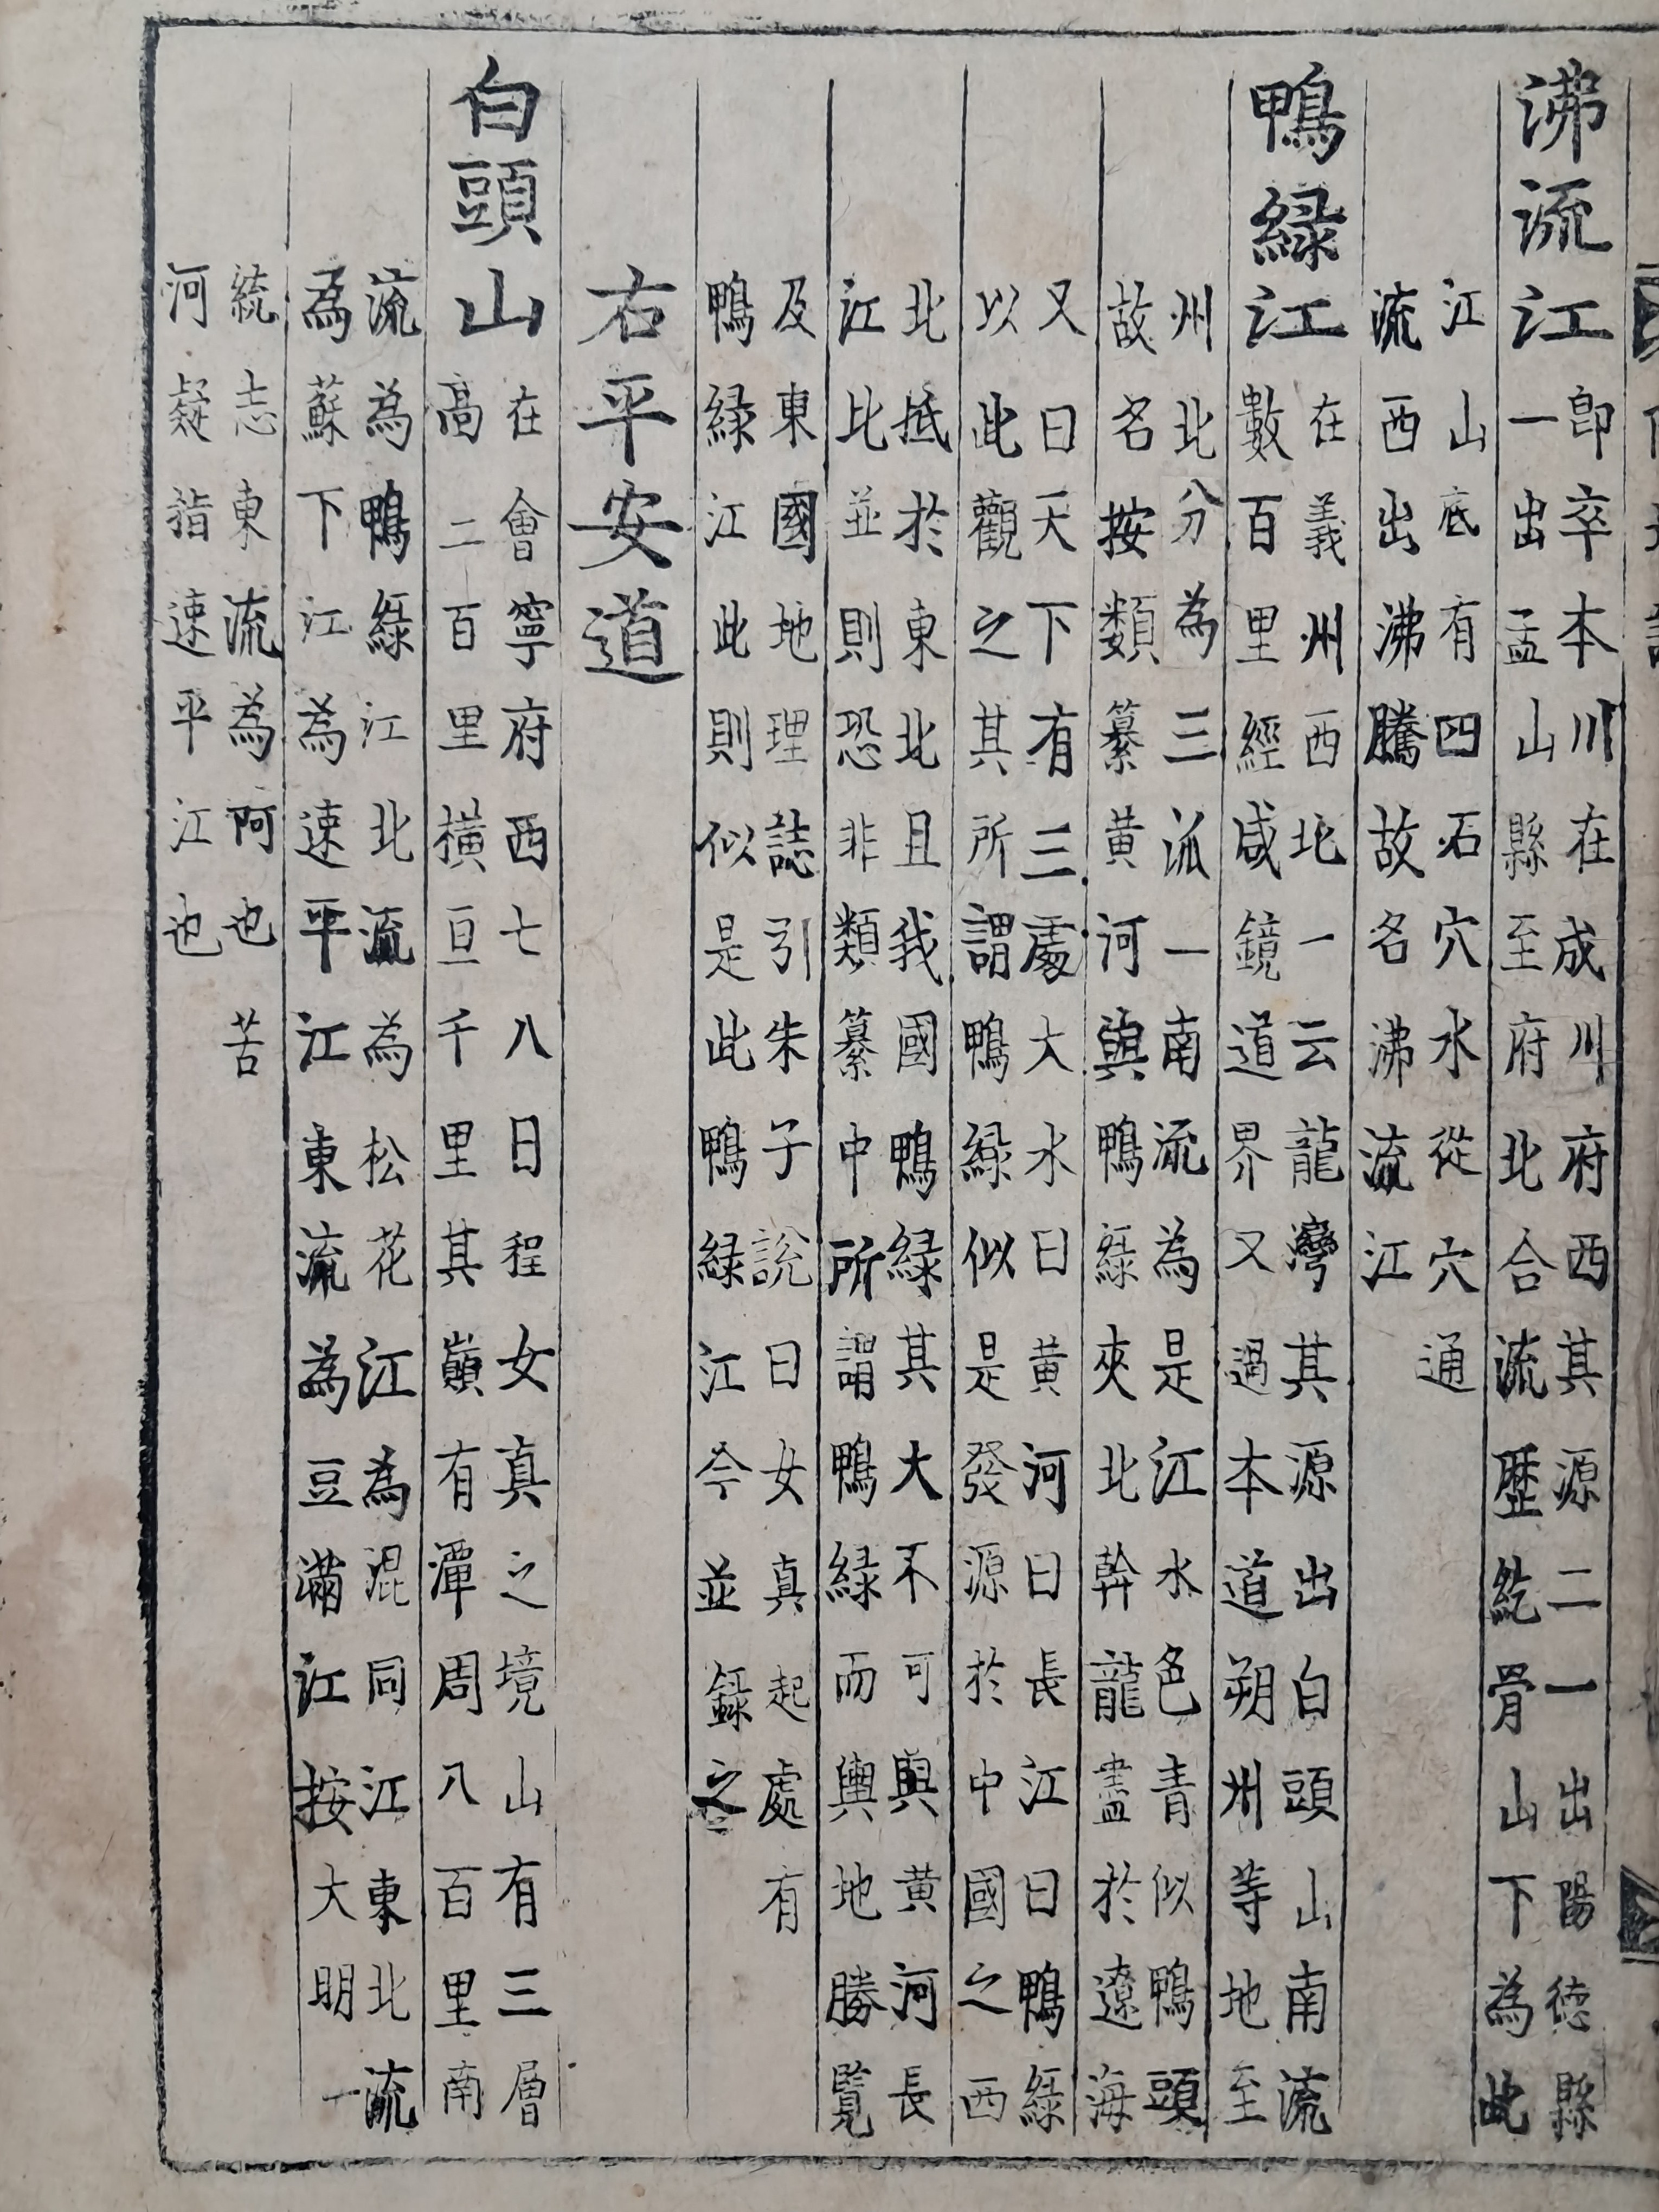 沸流江
即卒本川在成川府西其源二一出陽德縣
一出孟山縣至府北合流歷紇骨山下為此
江山底有四石穴水從穴通
流西出沸騰故名沸流江
鴨緑江
在義州西北一云龍灣其源出白頭山南流
數百里經咸鏡道界又過本道朔州等地至
州北分為三派一南流為是江水色青似鴨頭
故名按類纂黄河與鴨緑夾北幹龍盡於遼海
又曰天下有三處大水曰黄河曰長江曰鴨緑
以此觀之其所謂鴨緑似是發源於中國之西
北抵於東北且我國鴨緑其大不可與黄河長
江比並則恐非類纂中所謂鴨緑而輿地勝覧
及東國地理誌引朱子說曰女真起處有
鴨緑江此則似是此鴨緑江今並録之
右平安道
白頭山
在會寧府西七八日程女真之境山有三層
高二百里横亘千里其巔有潭周八百里南
流為鴨緑江北流為松花江為混同江東北流
為蘇下江為速平江東流為豆滿江按大明一
統志東流為阿也苦
河疑指速平江也